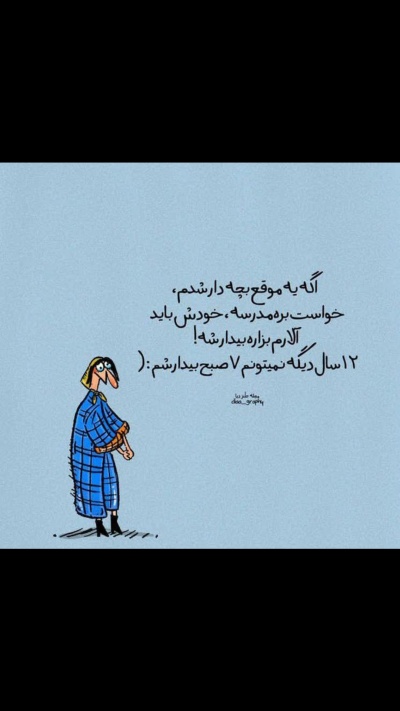 اگه یه موقع بچه دار شدم،
خواست بره مدرسه، خودش باید
آلارم بزاره بیدار شه!
۱۲ سال دیگه نمیتونم ۷ صبح بیدار شم :(